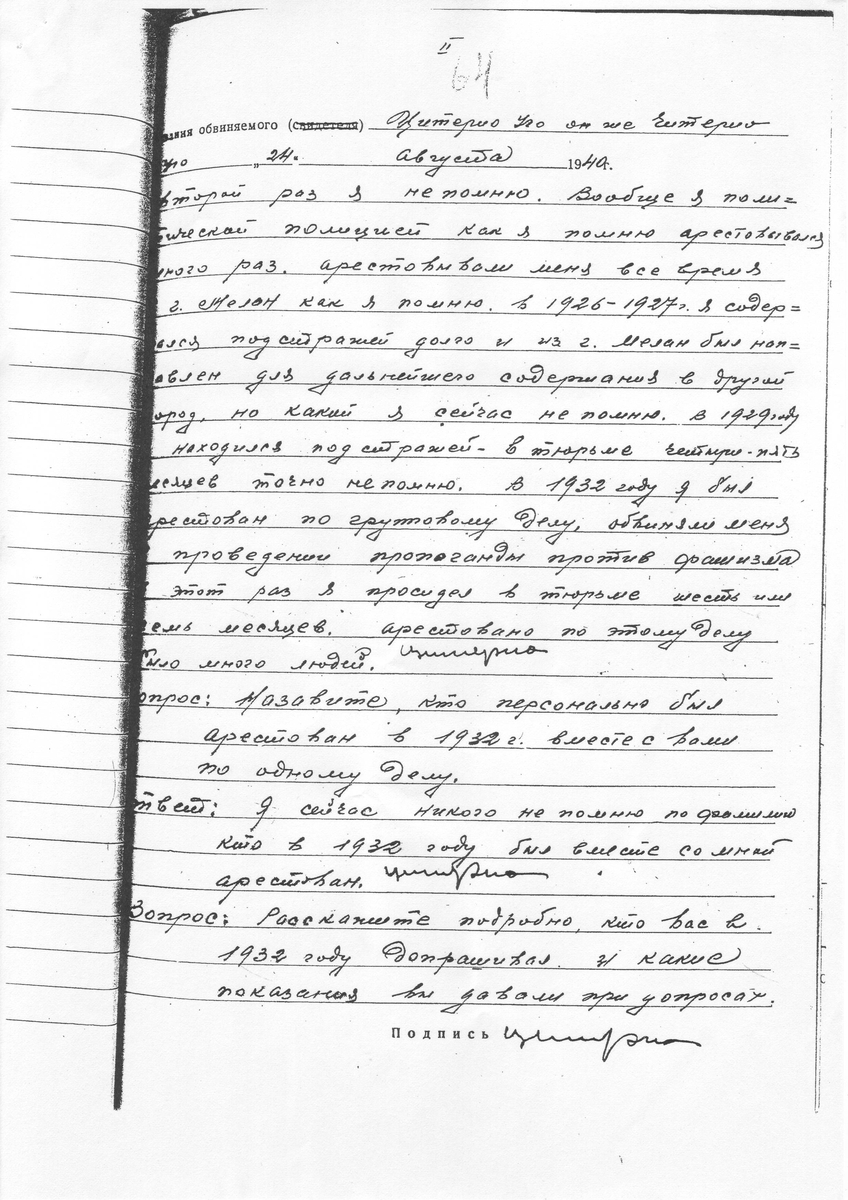 II
64
ания обвиняемого (свидетеля) Цитерио Уго он же Читерио
„24“ Августа 1940г.
второй раз я не помню. Вообще я поли=
тической полицией как я помню арестовывался
много раз. арестовывали меня все время
г. Мелан как я помню. в 1926-1927г. я содер=
ался под стражей долго и из г. Мелан был нап=
авлен для дальнейшего содержания в другой
город, но какий я сейчас не помню. в 1929 году
находился под стражей - в тюрьме четыри-пять
месяцев точно не помню. В 1932 году я был
арестован по групповому делу, обвиняли меня
в проведении пропоганды против фашизма
в этот раз я просидел в тюрьме шесть или
семь месяцев. арестовано по этому делу
было много людей. Цитерио
опрос: Назавите, кто персонально был
арестован в 1932 г. вместе с вами
по одному делу.
твет: Я сейчас никого не помню по фамилии
кто в 1932 году был вместе со мной
арестован. Цитерио
Вопрос: Расскажите подробно, кто вас в
1932 году допрашивал и какие
показания вы давали при допросах.
Подпись Цитерио